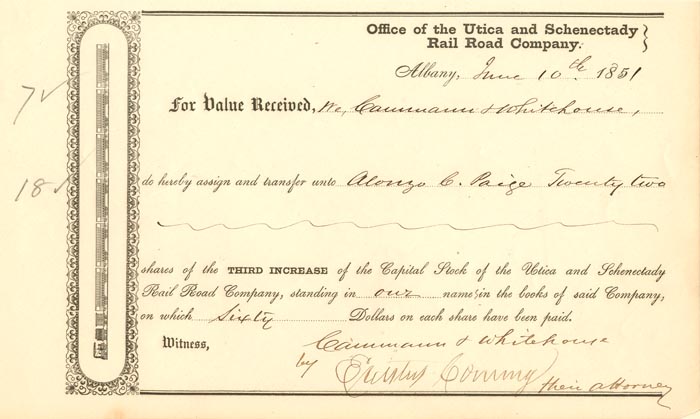 Office of the Utica and Schenectady
Rail Road Company.
Albany, June 10th 1851
7 ✓
For Value Received, We, Cammann & Whitehouse,
18 ✓
do hereby assign and transfer unto Alonzo C. Paige Twenty two
shares of the THIRD INCREASE of the Capital Stock of the Utica and Schenectady
Rail Road Company, standing in our name in the books of said Company,
on which Sixty Dollars on each share have been paid.
Witness, Cammann & Whitehouse
by Erastus Corning
their attorney